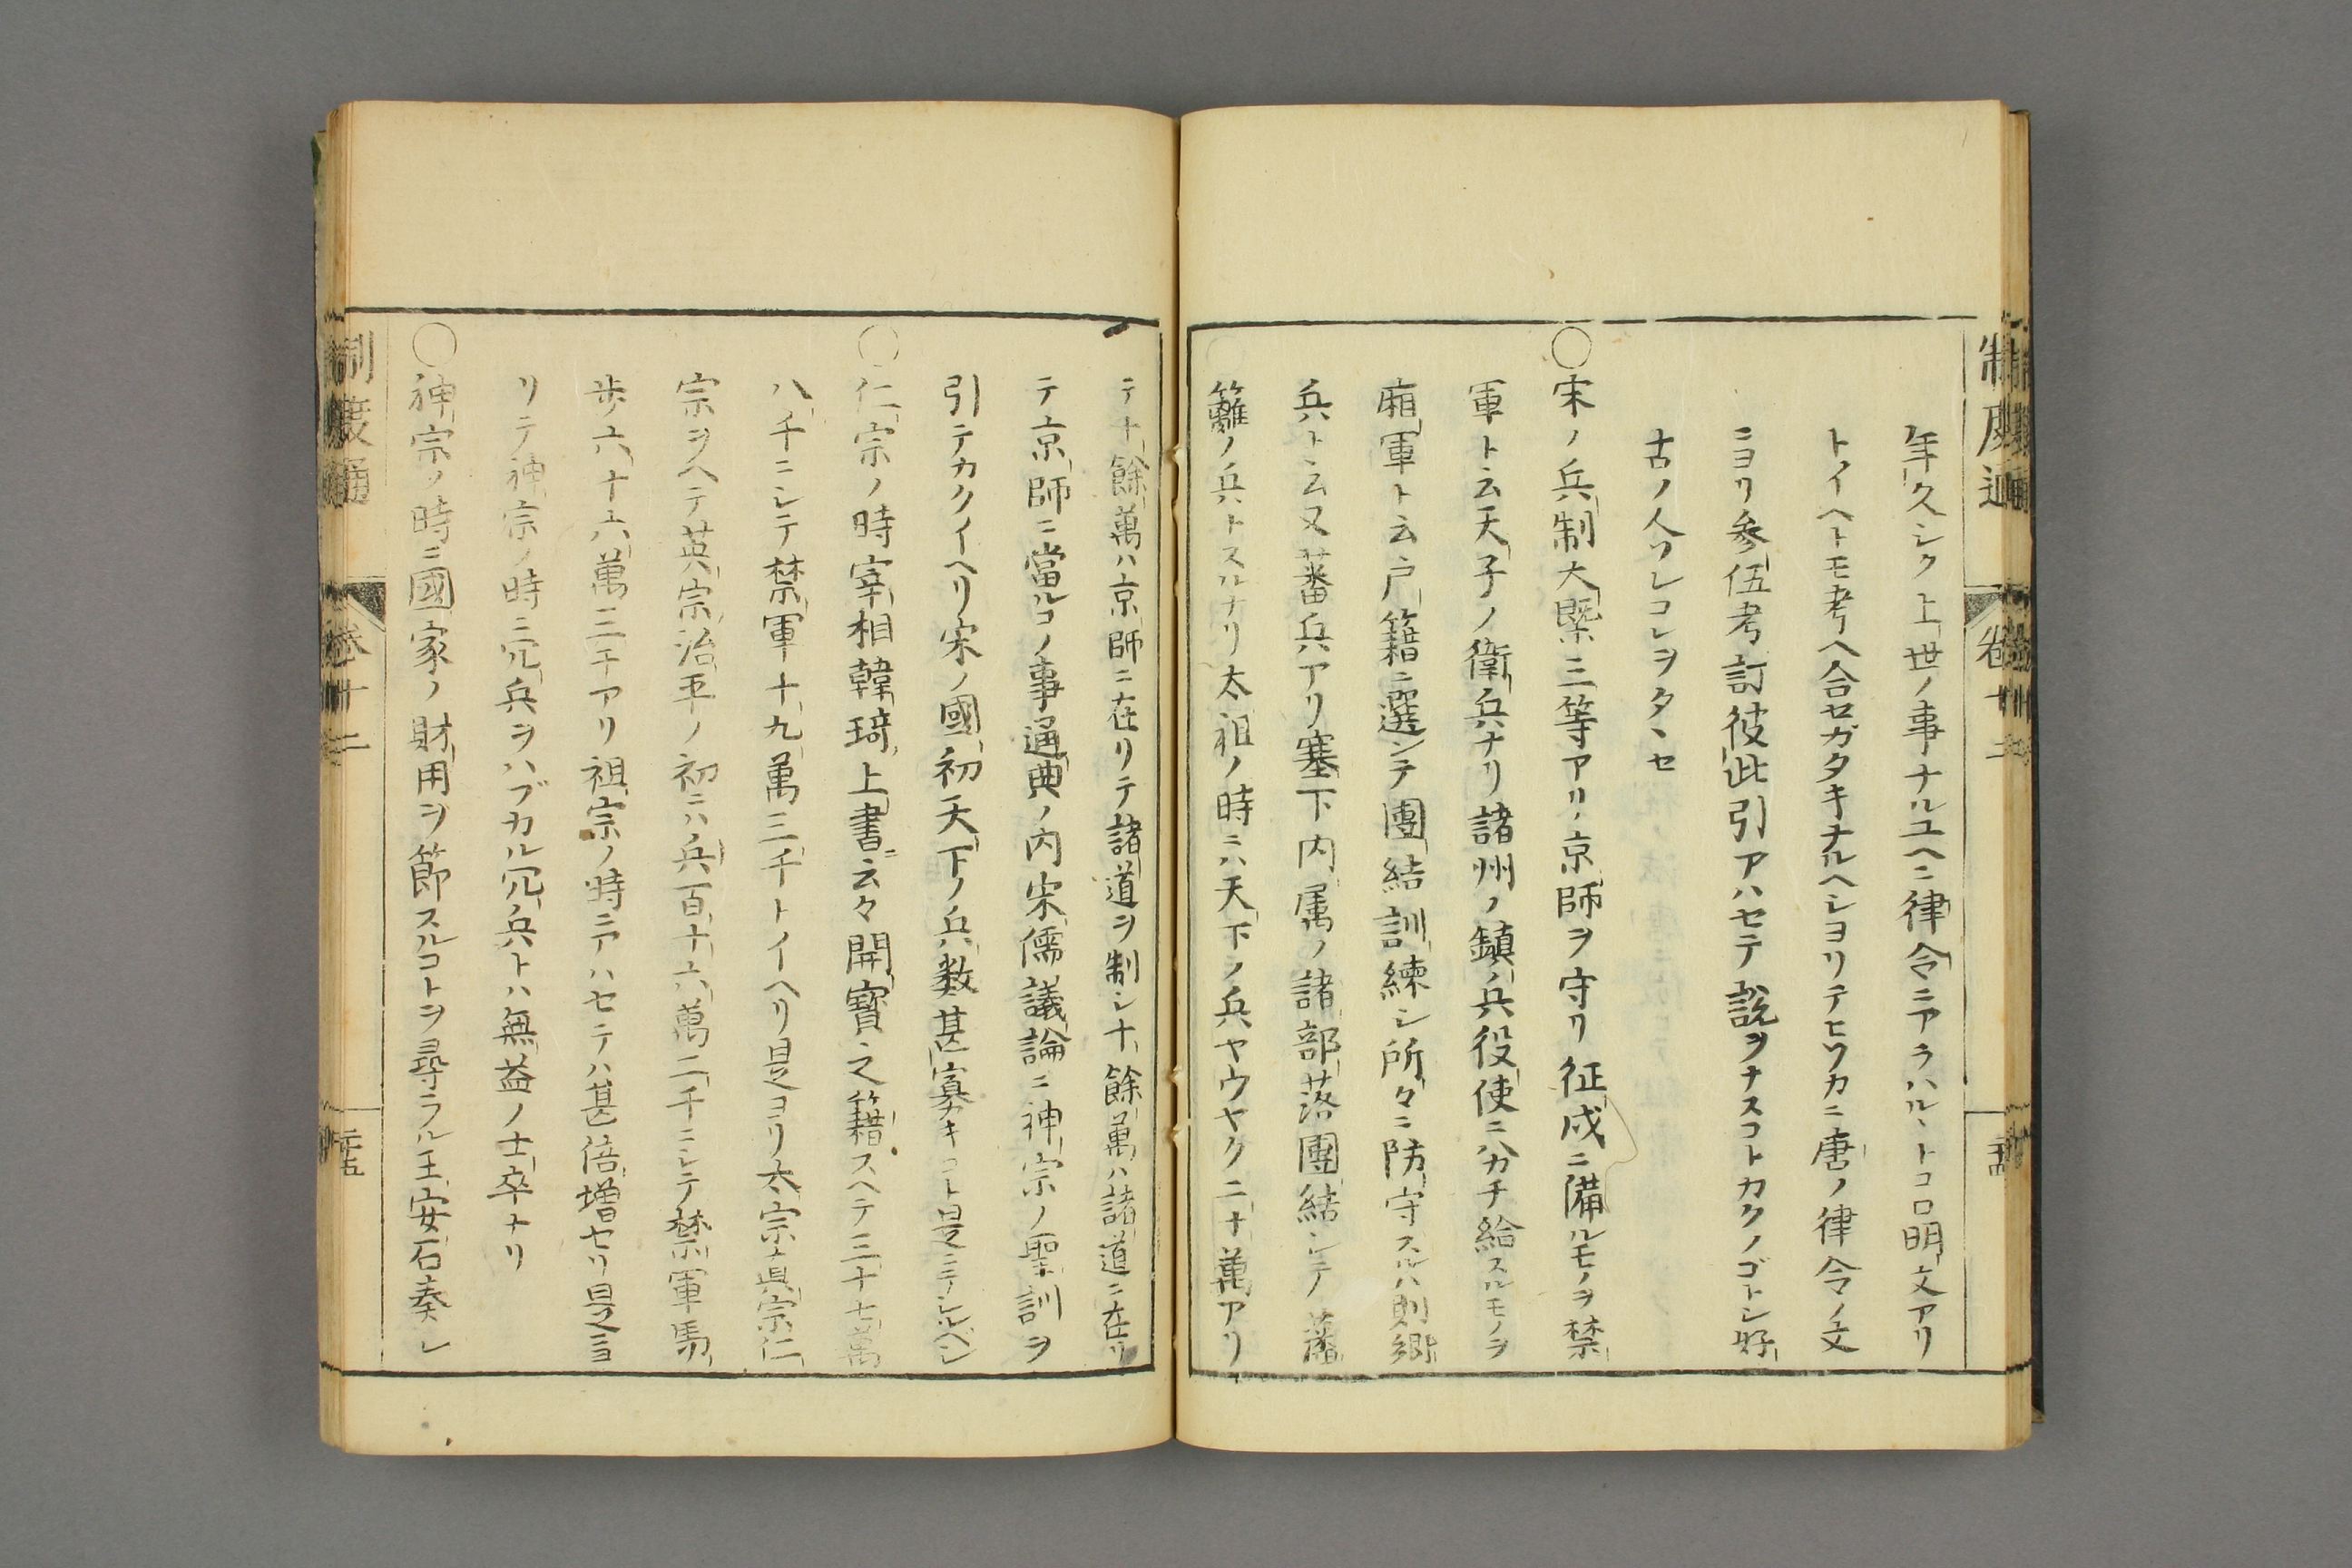 制度通 卷十二
年久シク上世ノ事ナルユヘニ律令ニアラハルヽトコロ明文アリ
トイヘトモ考ヘ合セガタキナルヘシヨリテヒソカニ唐ノ律令ノ文
ニヨリ参伍考訂彼此引アハセテ説ヲナスコトカクノゴトシ好
古ノ人ソレコレヲタヽセ
○宋ノ兵制大槩三等アリ京師ヲ守リ征戍ニ備ルモノヲ禁
軍ト云天子ノ衛兵ナリ諸州ノ鎮ノ兵役使ニ分カチ給スルモノヲ
廂軍ト云戸籍ニ選ンテ團結訓練シ所々ニ防守スルハ則郷
兵ト云又蕃兵アリ塞下内属ノ諸部落團結シテ藩
籬ノ兵トスルナリ太祖ノ時ニハ天下ノ兵ヤウヤク二十萬アリ
テ十餘萬ハ京師ニ在リテ諸道ヲ制シ十餘萬ハ諸道ニ在リ
テ京師ニ當ルコノ事通典ノ内宋儒議論ニ神宗ノ聖訓ヲ
引テカクイヘリ宋ノ國初天下ノ兵数甚寡キコト是ニテシルベシ
○仁宗ノ時宰相韓琦上書ニ云々開寶之籍スヘテ三十七萬
八千ニシテ禁軍十九萬三千トイヘリ是ヨリ太宗真宗仁
宗ヲヘテ英宗治平ノ初ニハ兵百十六萬二千ニシテ禁軍馬
歩六十六萬三千アリ祖宗ノ時ニアハセテハ甚倍増セリ是ヨ
リテ神宗ノ時ニ冗兵ヲハブカル冗兵トハ無益ノ士卒ナリ
○神宗ノ時ニ國家ノ財用ヲ節スルコトヲ尋ラル王安石奏シ
制度通 卷十二 二十五